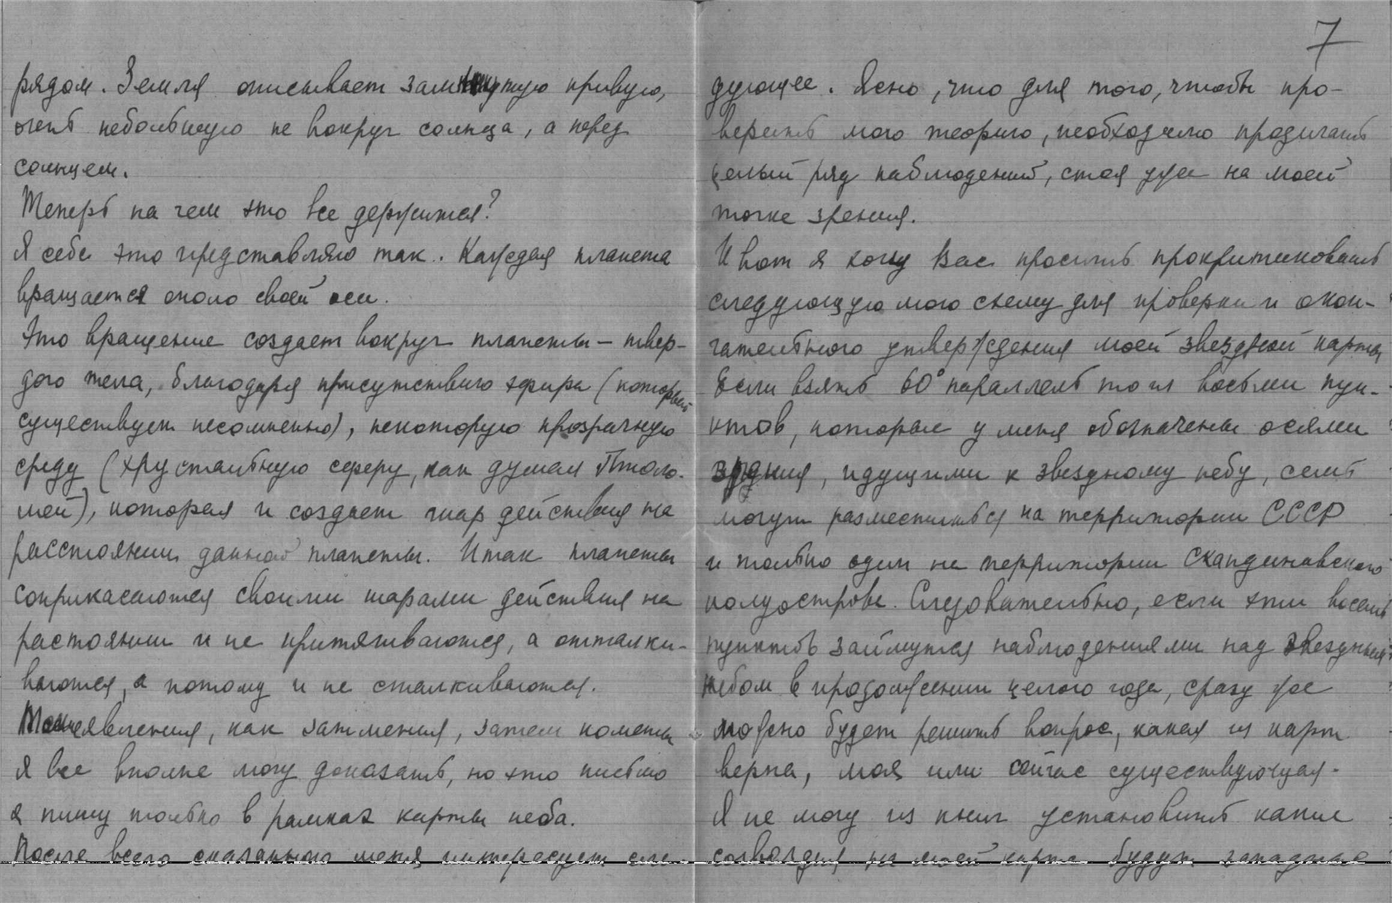 рядом. Земля описывает замкнутую кривую,
очень небольшую не вокруг солнца, а перед
солнцем.
Теперь на чем это все держится?
Я себе это представляю так. Каждая планета
вращается около своей оси.
Это вращение создает вокруг планеты – твер-
дого тела, благодаря присутствию эфира (который
существует несомненно), некоторую прозрачную
среду (хрустальную сферу, как думал Птоло-
мей), которая и создает шар действия на
расстоянии данной планеты. Итак планеты
соприкасаются своими шарами действия на
растоянии и не притягиваются, а отталки-
ваются, а потому и не сталкиваются.
явления, как затмения, затем кометы
я все вполне могу доказать, но это письмо
я пишу только в рамках карты неба.
После всего сказанного меня интересует сле-
7
дующее. Ясно, что для того, чтобы про-
верить мою теорию, необходимо проделать
целый ряд наблюдений, стоя уже на моей
точке зрения.
И вот я хочу Вас просить прокритиковать
следующую мою схему для проверки и окон-
чательного утверждения моей звездной карты
Если взять 60° параллель то из восьми пун-
ктов, которые у меня обозначены осями
зрения, идущими к звездному небу, семь
могут разместиться на территории СССР
и только один на территории Скандинавского
полуострова. Следовательно, если эти восемь
пунктов займутся наблюдениями над звездным
небом в продолжении целого года, сразу же
можно будет решить вопрос, какая из карт
верна, моя или сейчас существующая.
Я не могу из книг установить какие
созвездия на моей карте будут западные